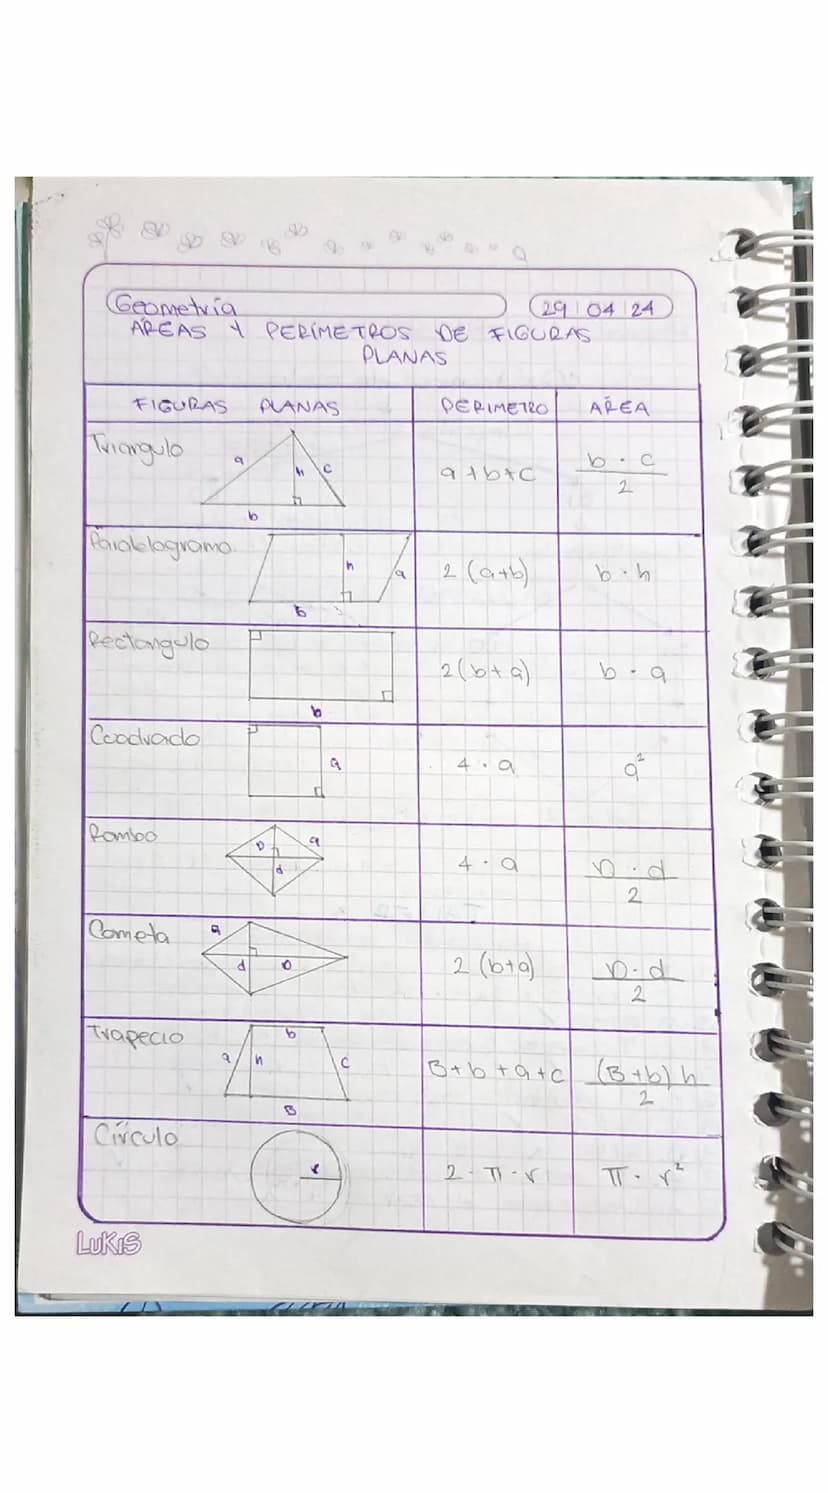 Geometría
29 04 24
ÁREAS Y PERÍMETROS DE FIGURAS
PLANAS
FIGURAS PLANAS PERIMETRO ÁREA
Triangulo
a h c
b
a+b+c
b · c
2
Paralelogramo
h a
b
2 (a+b)
b · h
Rectangulo
b
2(b+a)
b · a
Cuadrado
a
4 · a
a²
Rombo
D a
d
4 · a
D · d
2
Cometa
a
d D
2 (b+a)
D · d
2
Trapecio
b
a h c
B
B+b+a+c
(B+b)h
2
Círculo
r
2 · π · r
π · r²
LUKIS